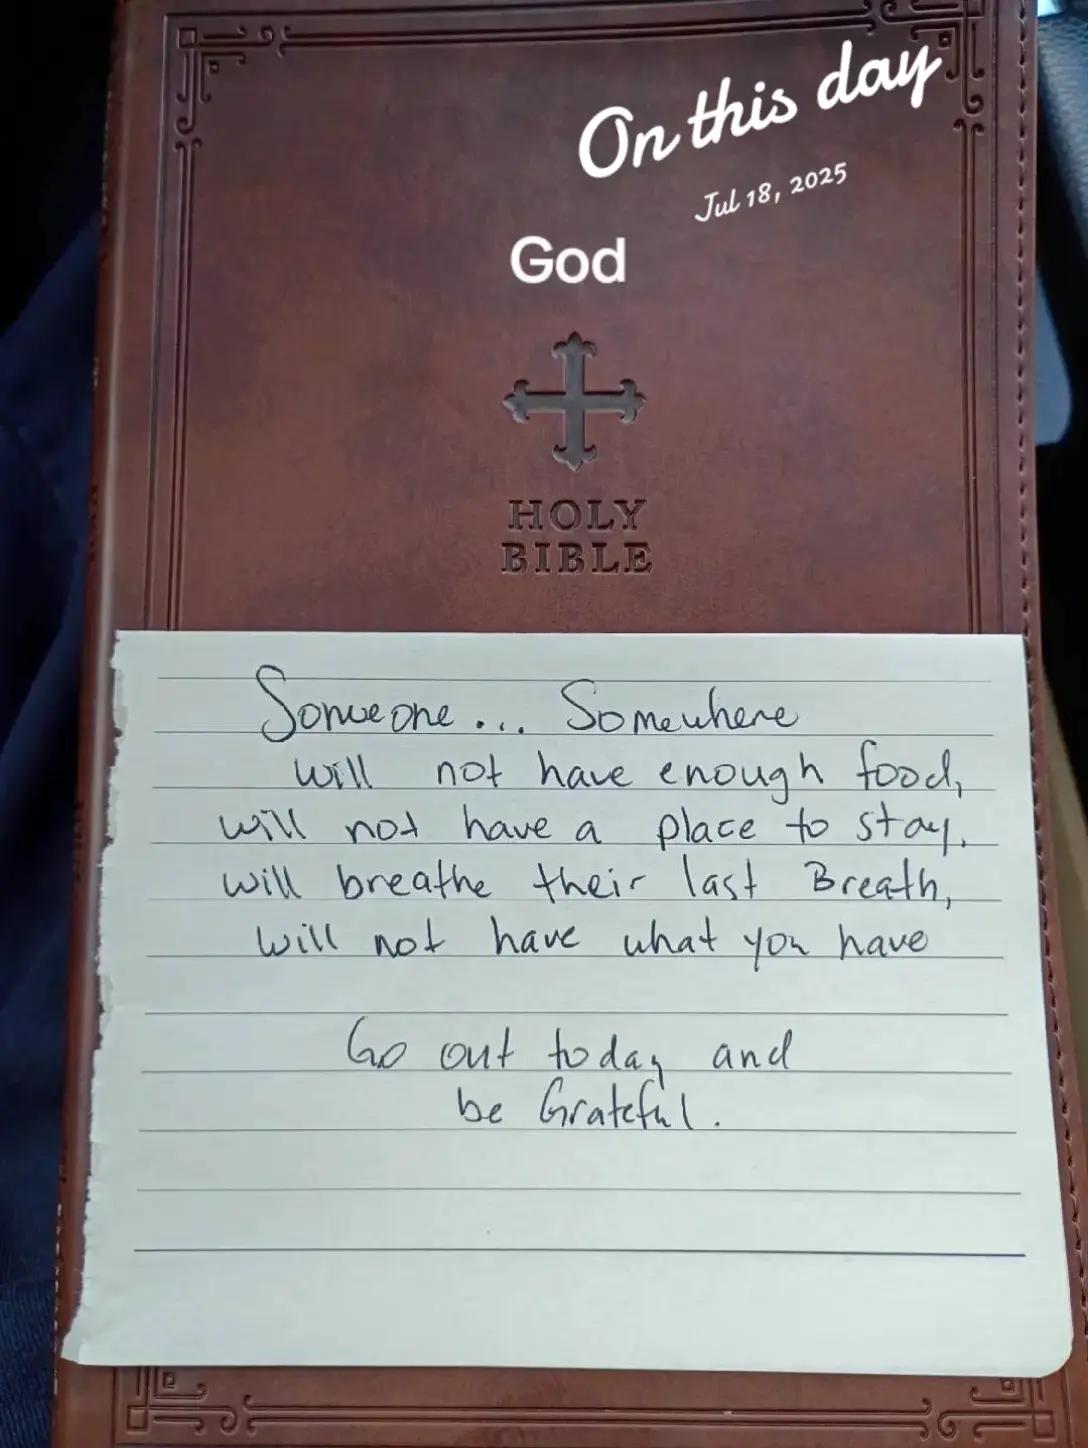 On this day
Jul 18, 2025
God
HOLY
BIBLE
Someone... Somewhere
will not have enough food,
will not have a place to stay,
will breathe their last Breath,
will not have what you have
Go out today and
be Grateful.